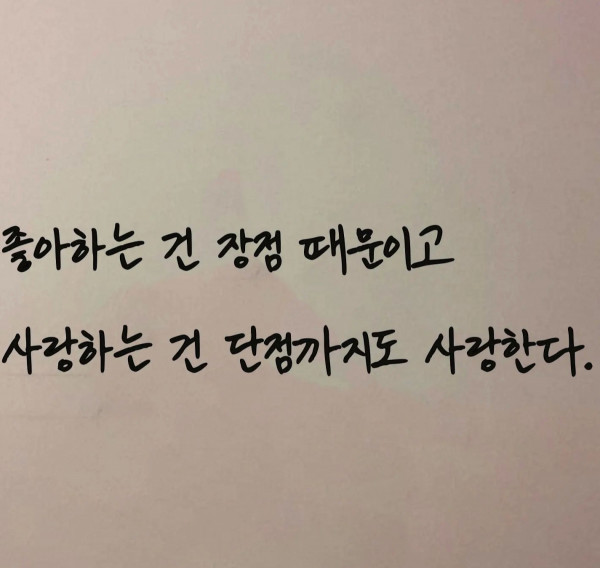 좋아하는 건 장점 때문이고
사랑하는 건 단점까지도 사랑한다.